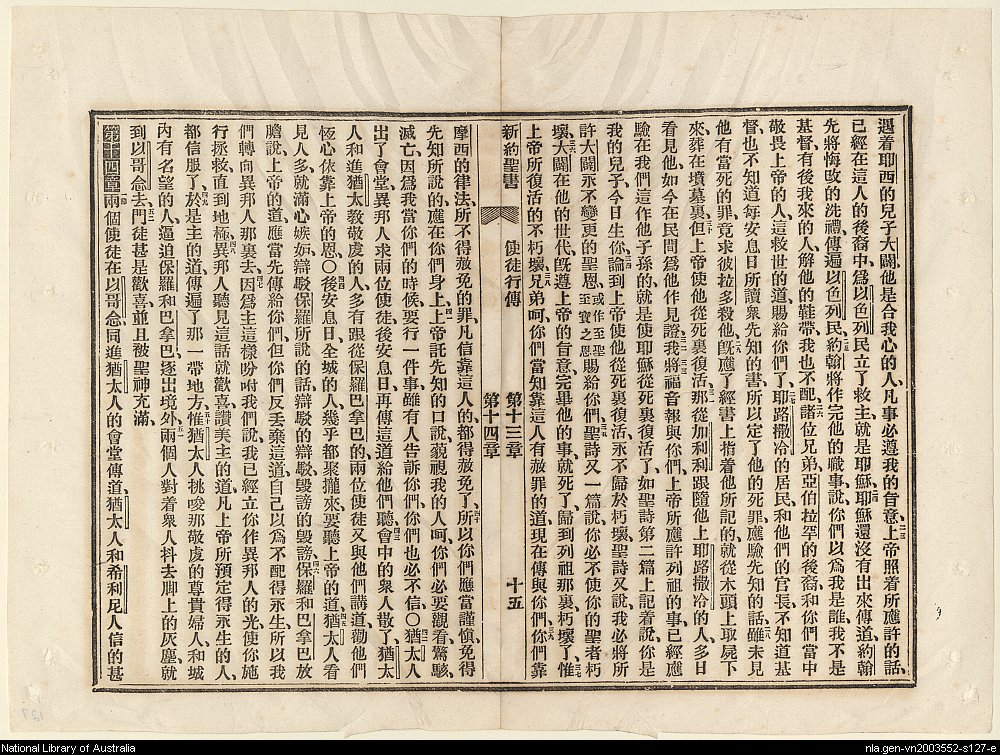 遇着耶西的兒子大闢他是合我心的人、凡事必遵我的旨意、上帝照着所應許的話、
已經在這人的後裔中、為以色列民立了救主、就是耶穌、耶穌還沒有出來傳道、約翰
先將悔改的洗禮、傳遍以色列民、約翰將作完他的職事、說、你們以為我是誰、我不是
基督、有後我來的人、解他的鞋帶、我也不配、諸位兄弟、亞伯拉罕的後裔、和你們當中
敬畏上帝的人、這救世的道、賜給你們了、耶路撒冷的居民、和他們的官長、不知道基
督、也不知道每安息日所讀衆先知的書、所以定了他的死罪、應驗先知的話、雖未見
他有當死的罪、竟求彼拉多殺他、既應了經書上指着他所記的、就從木頭上取屍下
來、葬在墳墓裏、但上帝使他從死裏復活、那從加利利跟隨他上耶路撒冷的人、多日
看見他、如今在民間為他作見證、我將福音報與你們、上帝所應許列祖的事、已經應
驗在我們這作他子孫的、就是使耶穌從死裏復活了、如聖詩第二篇上記着說、你是
我的兒子、今日生你、論到上帝使他從死裏復活、永不歸於朽壞、聖詩又說、我必將所
許大闢永不變更的聖恩或作至聖至寶之恩賜給你們、聖詩又一篇說、你必不使你的聖者朽
壞、大闢在他的世代、既遵上帝的旨意、完畢他的事、就死了、歸到列祖那裏、朽壞了、惟
上帝所復活的、不朽壞、兄弟呵、你們當知靠這人有赦罪的道、現在傳與你們、你們靠
新約聖書 使徒行傳 第十三章 第十四章 十五
摩西的律法、所不得赦免的罪、凡信靠這人的、都得赦免了、所以你們應當謹慎、免得
先知所說的、應在你們身上、上帝託先知的口說、藐視我的人呵、你們必要觀看、驚駭、
滅亡、因為我當你們的時候、要行一件事、雖有人告訴你們、你們也必不信、○猶太人
出了會堂、異邦人求兩位使徒、後安息日、再傳這道給他們聽、會中的衆人散了、猶太
人和進猶太教敬虔的人、多有跟從保羅巴拿巴的、兩位使徒又與他們講道、勸他們
恆心依靠上帝的恩、○後安息日、全城的人、幾乎都聚攏來、要聽上帝的道、猶太人看
見人多、就滿心嫉妬、辯駁保羅所說的話、辯駁的辯駁、毀謗的毀謗、保羅和巴拿巴放
膽說、上帝的道、應當先傳給你們、但你們反丟棄這道、自己以為不配得永生、所以我
們轉向異邦人那裏去、因為主這樣吩咐我們說、我已經立你作異邦人的光、使你施
行拯救、直到地極、異邦人聽見這話、就歡喜、讚美主的道、凡上帝所預定得永生的人、
都信服了、於是主的道、傳遍了那一帶地方、惟猶太人挑唆那敬虔的尊貴婦人、和城
內有名望的人、逼迫保羅和巴拿巴、逐出境外、兩個人對着衆人抖去脚上的灰塵、就
到以哥念去、門徒甚是歡喜、並且被聖神充滿、
第十四章兩個使徒在以哥念同進猶太人的會堂傳道、猶太人和希利尼人信的甚
National Library of Australia
nla.gen-vn2003552-s127-e